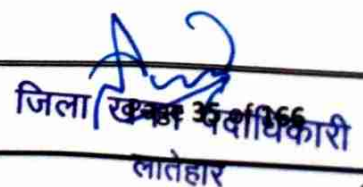 जिला खनन पदाधिकारी
Page 35 of 166
लातेहार